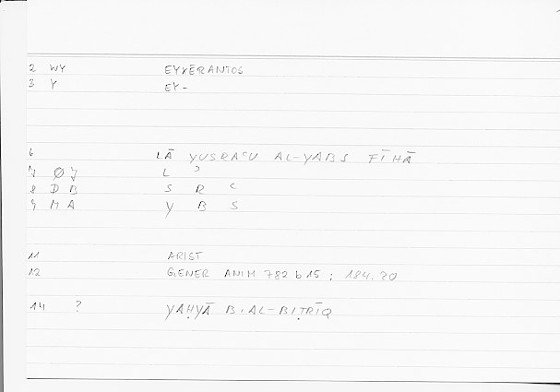 2 WY EYXĒRANTOS
3 Y EY-
6 LĀ YUSRAʿU AL-YABS FĪHĀ
7 Ø7 L ʾ
8 DB S R ʿ
9 MA Y B S
11 ARIST
12 GENER ANIM 782 b 15 ; 184.20
14 ? YAḤYĀ B. AL-BIṬRĪQ